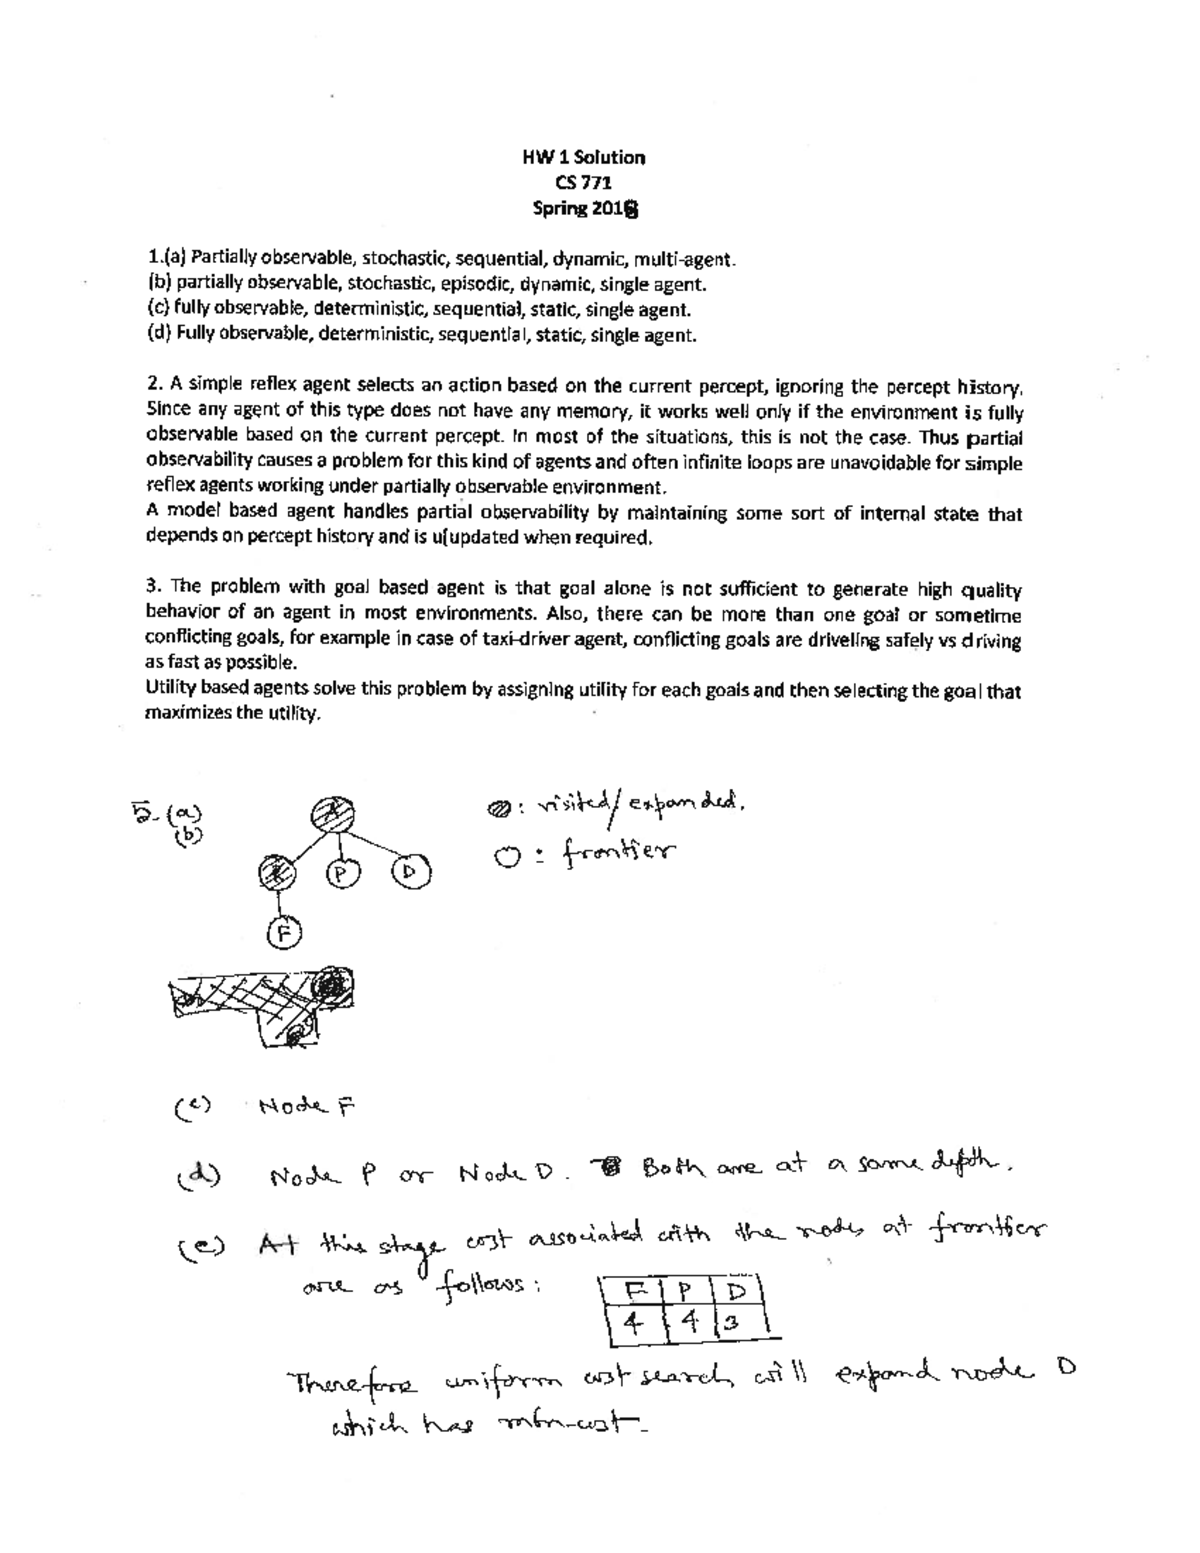 HW 1 Solution
CS 771
Spring 2018
1.(a) Partially observable, stochastic, sequential, dynamic, multi-agent.
(b) partially observable, stochastic, episodic, dynamic, single agent.
(c) fully observable, deterministic, sequential, static, single agent.
(d) Fully observable, deterministic, sequential, static, single agent.
2. A simple reflex agent selects an action based on the current percept, ignoring the percept history.
Since any agent of this type does not have any memory, it works well only if the environment is fully
observable based on the current percept. In most of the situations, this is not the case. Thus partial
observability causes a problem for this kind of agents and often infinite loops are unavoidable for simple
reflex agents working under partially observable environment.
A model based agent handles partial observability by maintaining some sort of internal state that
depends on percept history and is u(updated when required.
3. The problem with goal based agent is that goal alone is not sufficient to generate high quality
behavior of an agent in most environments. Also, there can be more than one goal or sometime
conflicting goals, for example in case of taxi-driver agent, conflicting goals are driveling safely vs driving
as fast as possible.
Utility based agents solve this problem by assigning utility for each goals and then selecting the goal that
maximizes the utility.
5. (a)
(b)
A
: visited/expanded.
P D
: frontier
F
(c) Node F
(d) Node P or Node D. Both are at a same depth.
(e) At this stage cost associated with the nodes at frontier
are as follows:
F P D
4 4 3
Therefore uniform cost search will expand node D
which has min-cost.